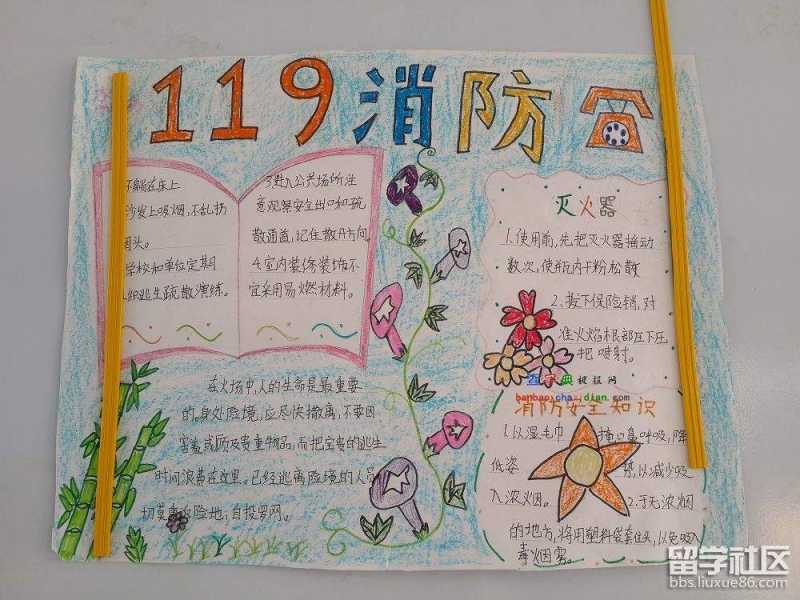 119消防
不躺在床上
沙发上吸烟,不乱扔
烟头。
学校和单位定期
组织逃生疏散演练。
3.进入公共场所注
意观察安全出口和疏
散通道,记住散方向。
4.室内装修装饰不
宜采用易燃材料。
在火场中,人的生命是最重要
的,身处险境,应尽快撤离,不要因
害羞或顾及贵重物品,而把宝贵的逃生
时间浪费在这里。已经逃离险境的人员
切莫重返险地,自投罗网。
灭火器
1.使用前,先把灭火器摇动
数次,使瓶内干粉松散
2.拔下保险销,对
准火焰根部压下压
把喷射。
查字典板报网
banbao.chazidian.com
消防安全知识
1.以湿毛巾掩口鼻呼吸,降
低姿势,以减少吸
入浓烟。2.于无浓烟
的地方,将用塑料袋套住头,以免吸入
毒烟雾。
留学社区
bbs.liuxue86.com